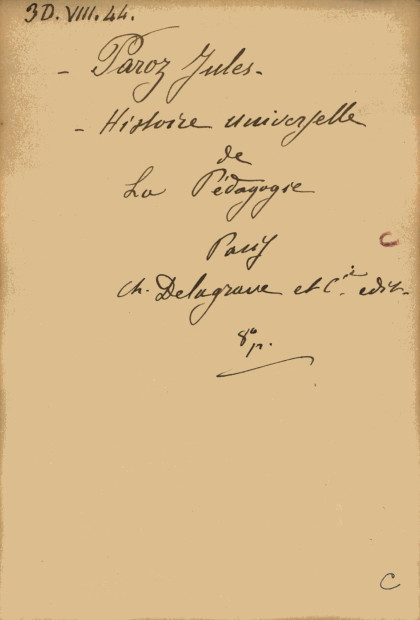 3D. VIII. 44.
- Paroz Jules -
- Histoire universelle
de
La Pédagogie
Paris
Ch. Delagrave et C.ie edit-
8º p.
C
C